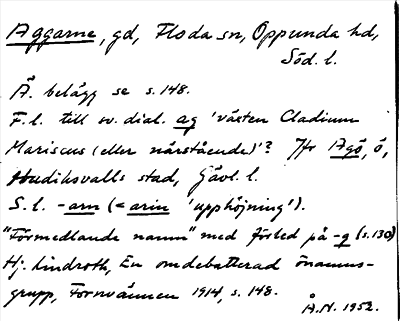 Aggarne, gd, Floda sn, Oppunda hd,
Söd. l.
Ä. belägg se s. 148.
F.l. till sv. dial. ag 'växten Cladium
Mariscus (eller närstående)'? Jfr Agö, ö,
Hudiksvalls stad, Gävl. l.
S. l. -arn (< arin 'upphöjning').
"Förmedlande namn" med förled på -g (s. 130)
Hj. Lindroth, En omdebatterad önamns-
grupp, Fornvännen 1914, s. 148.
Å.N. 1952.